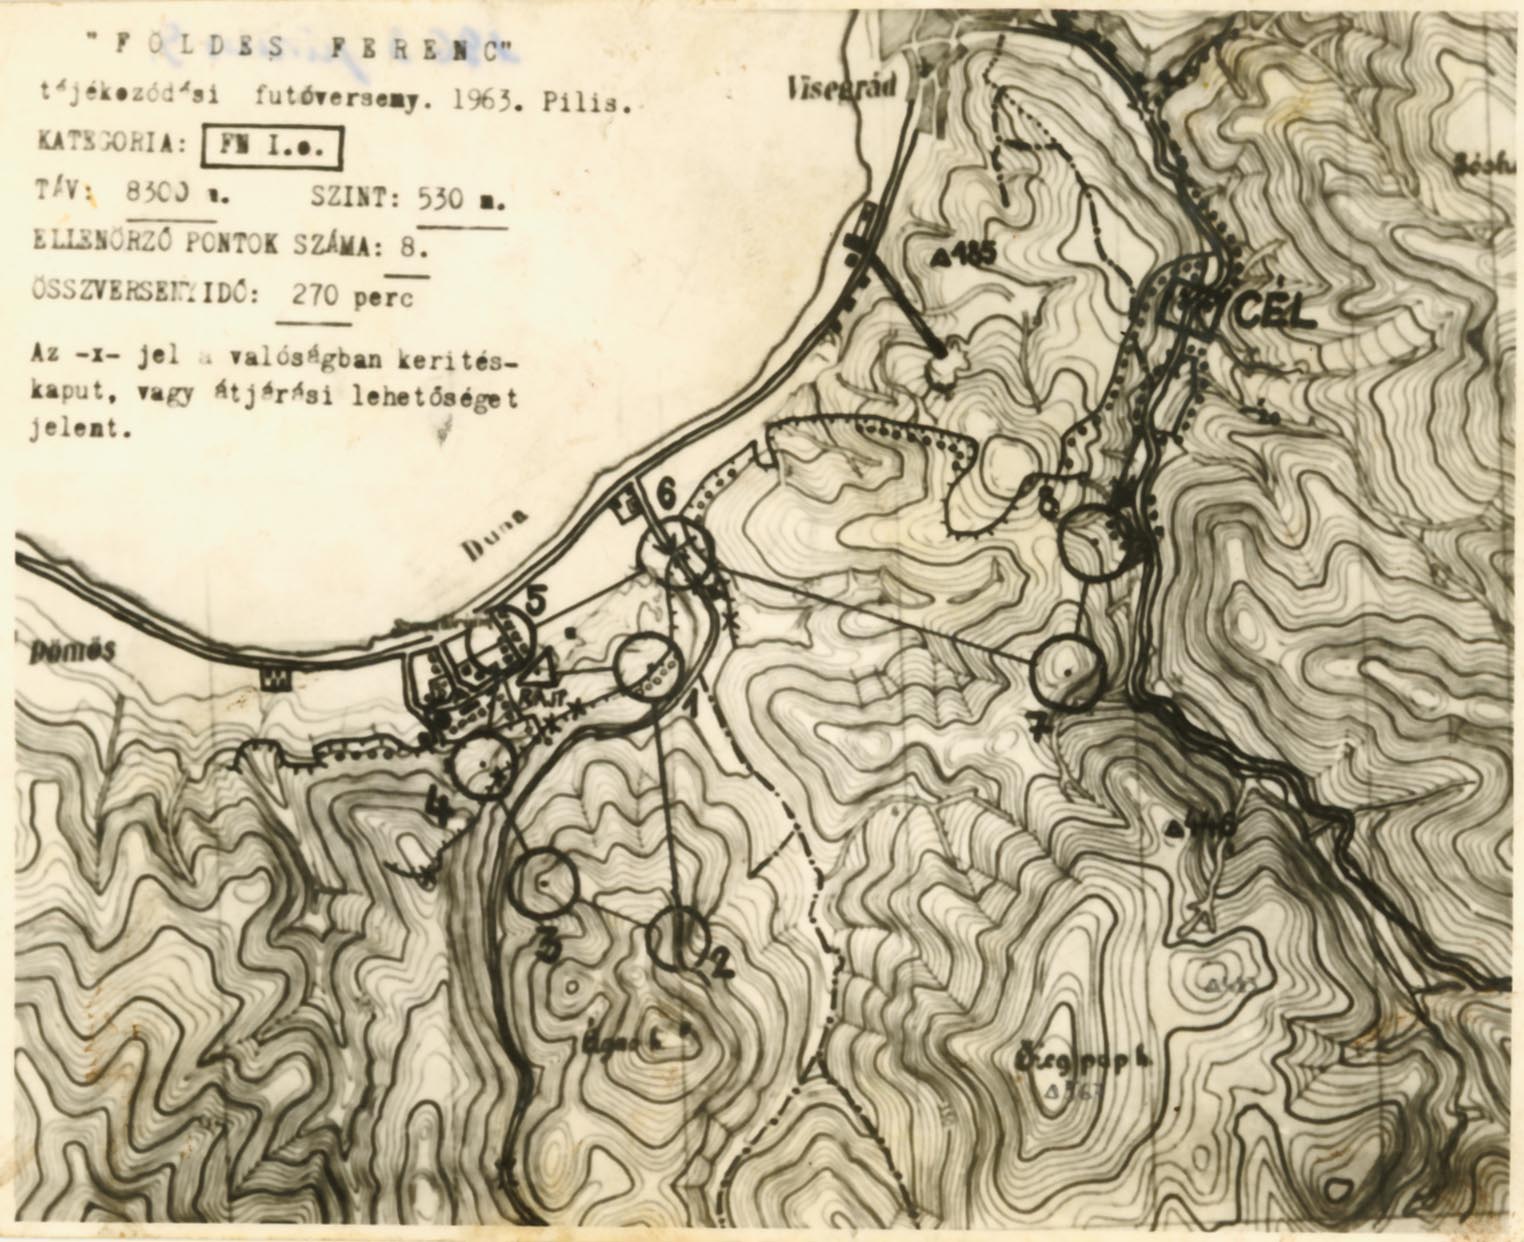 "FÖLDES FERENC"
tájékozódási futóverseny. 1963. Pilis.
KATEGORIA: FN I.o.
TÁV: 8300 m. SZINT: 530 m.
ELLENŐRZŐ PONTOK SZÁMA: 8.
ÖSSZVERSENYIDŐ: 270 perc
Az -x- jel a valóságban kerités-
kaput, vagy átjárási lehetőséget
jelent.
Visegrád
△485
CÉL
6
8
Duna
5
pömös
RAJT
1
7
4
△446
3
2
Öregpap h.
△563